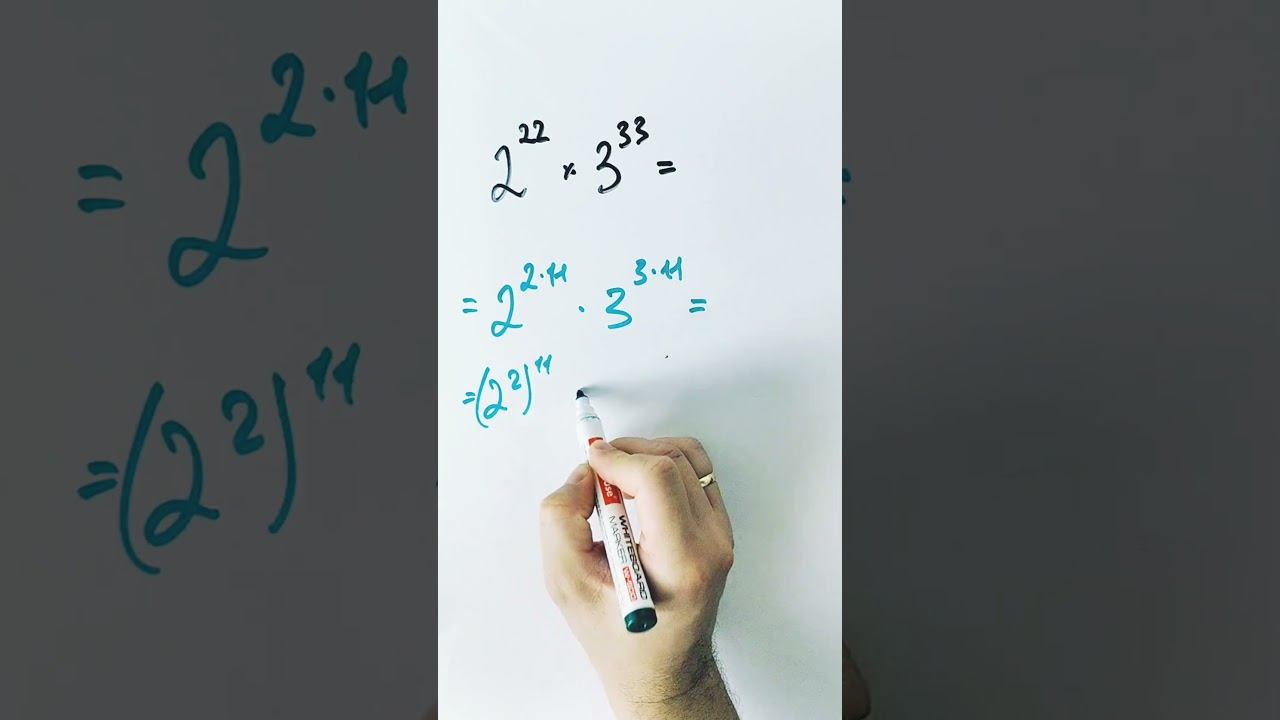 2²² × 3³³ =
= 2²·¹¹ · 3³·¹¹ =
= (2²)¹¹
WHITEBOARD
MARKER